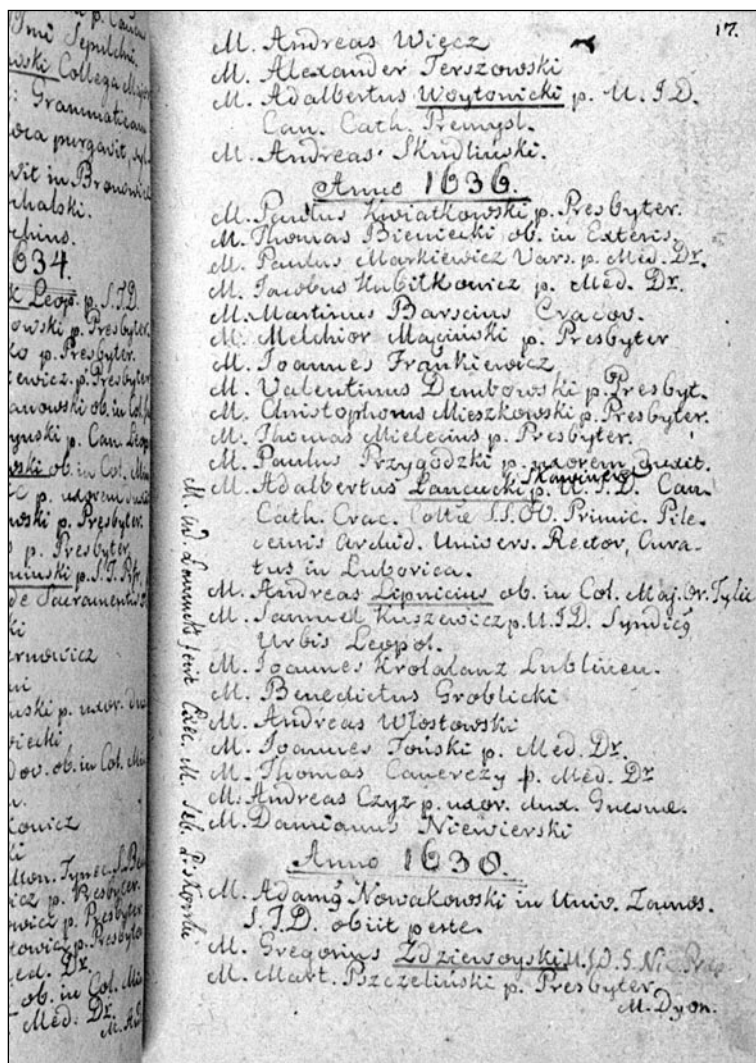 p. Canon
Imi Sepulchri.
wski Collega Major
: Grammaticam
loca purgavit,
vit in Bronowice
chalski.
chius.
634.
Leop. p. S.T.D.
owski p. Presbyter.
ko p. Presbyter.
ewicz. p. Presbyter
anowski ob. in Col.
ynski p. Can. Leop
wski ob. in Col. Min
ic p. uxorem duxit
wski p. Presbyter.
p. Presbyter.
niuski p. S.T. Pr
de Sacramentis
ki
ernowicz
ni
uski p. uxor. dux
wiecki
Dov. ob. in Col. Min
n.
kowicz
ki
Mon. Tynec. S. Ben
icz p. Presbyter.
owicz p. Presbyter
towicz p. Presbyter
ed. Dr.
ob. in Col. Min
Med. Dr.
M. And
17.
M. Andreas Więcz
M. Alexander Terszowski
M. Adalbertus Woytonicki p. U. J. D.
Can. Cath. Premysl.
M. Andreas Skudliński.
Anno 1636.
M. Paulus Kwiatkowski p. Presbyter.
M. Thomas Bieniecki ob. in Exteris.
M. Paulus Markiewicz Vars. p. Med. Dr.
M. Jacobus Kubitkowicz p. Med. Dr.
M. Martinus Barscius Cracov.
M. Melchior Maciński p. Presbyter
M. Joannes Frankiewicz
M. Valentinus Dembowski p. Presbyt.
M. Christophorus Mieszkowski p. Presbyter.
M. Thomas Mielecius p. Presbyter.
M. Paulus Przygodzki p. uxorem duxit.
M. Adalbertus Lancucki p. U. J. D. Can.
Cath. Crac. Coltie SS. OO. Primic. Pile-
censis Archid. Univers. Rector, Cura-
tus in Luborica.
M. Andreas Lipnicius ob. in Col. Maj. Or. Tylic
M. Samuel Kuszewicz p. U. J. D. Syndicꝰ
Urbis Leopol.
M. Joannes Krolalanz Lublinen.
M. Benedictus Groblicki
M. Andreas Wlostowski
M. Joannes Toński p. Med. Dr.
M. Thomas Cauerczy p. Med. Dr
M. Andreas Czyz p. uxor. dux. Gnesnae.
M. Damianus Niewierski
Anno 1638.
M. Adamꝰ Nowakowski in Univ. Zamos.
S. T. D. obiit peste.
M. Gregorius Zdziewoyski U. J. D. S. Nic. Prep
M. Mart. Pszczeliński p. Presbyter
M. Dyon.
M. Ad. Lancucki fecit Calc. M. Seb. Piskorski